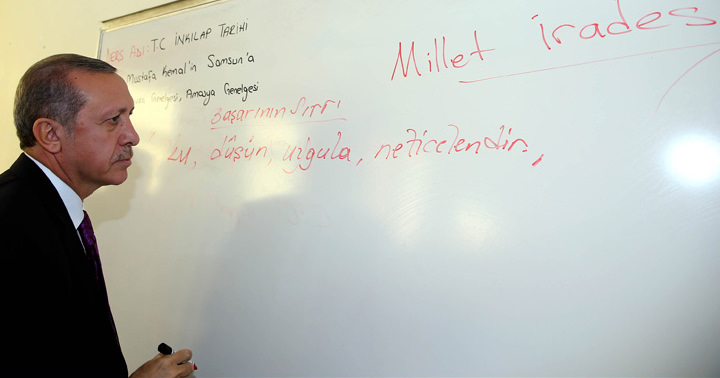 DERS ADI: T.C İNKILAP TARİHİ
Mustafa Kemal'in Samsun'a
Genelgesi, Amasya Genelgesi
Millet irades
Başarının Sırrı
düşün, uygula, neticelendir,